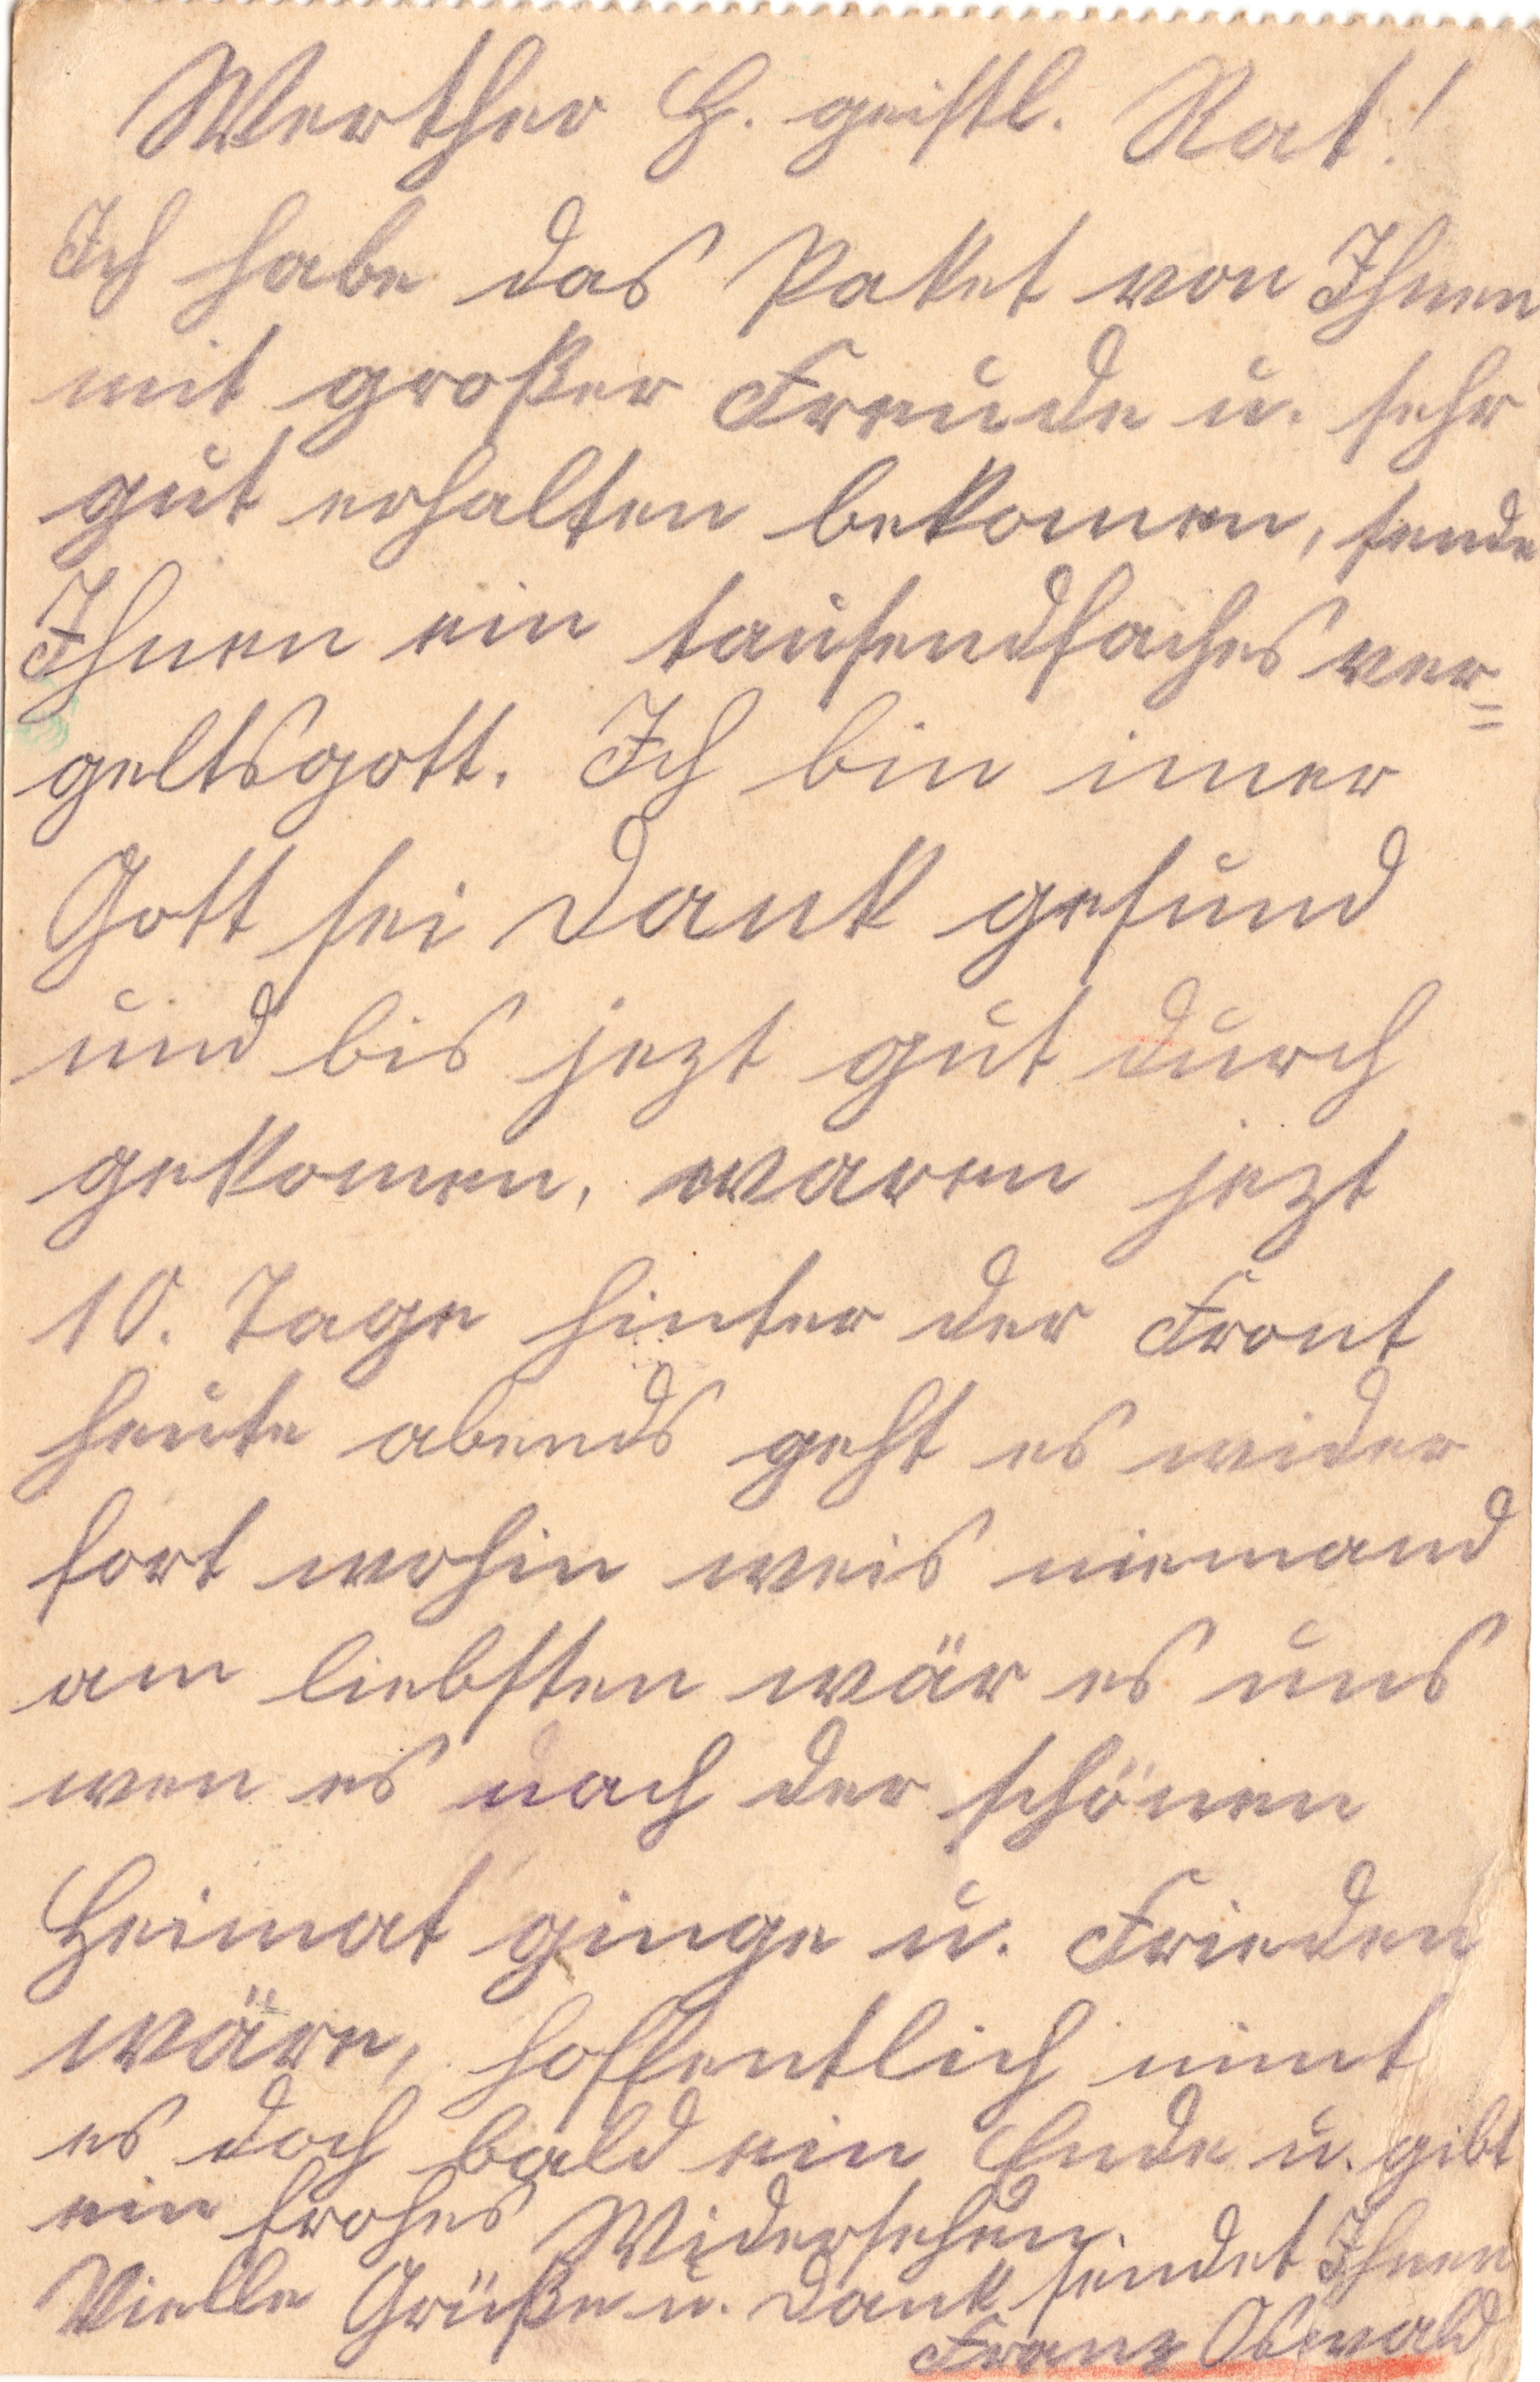 Werther H. geistl. Rat!
Ich habe das Paket von Ihnen
mit großer Freude u. sehr
gut erhalten bekomen, sende
Ihnen ein tausendfaches ver=
geltsgott. Ich bin imer
Gott sei Dank gesund
und bis jezt gut durch
gekomen, waren jezt
10. Tage hinter der Front
heute abends geht es wider
fort wohin weis niemand
am liebsten wär es uns
wen es nach der schönen
Heimat ginge u. Frieden
wäre, hoffentlich nimt
es doch bald ein Ende u. gibt
ein frohes Widersehen.
Vielle Grüße u. Dank sendet Ihnen
Franz Oswald